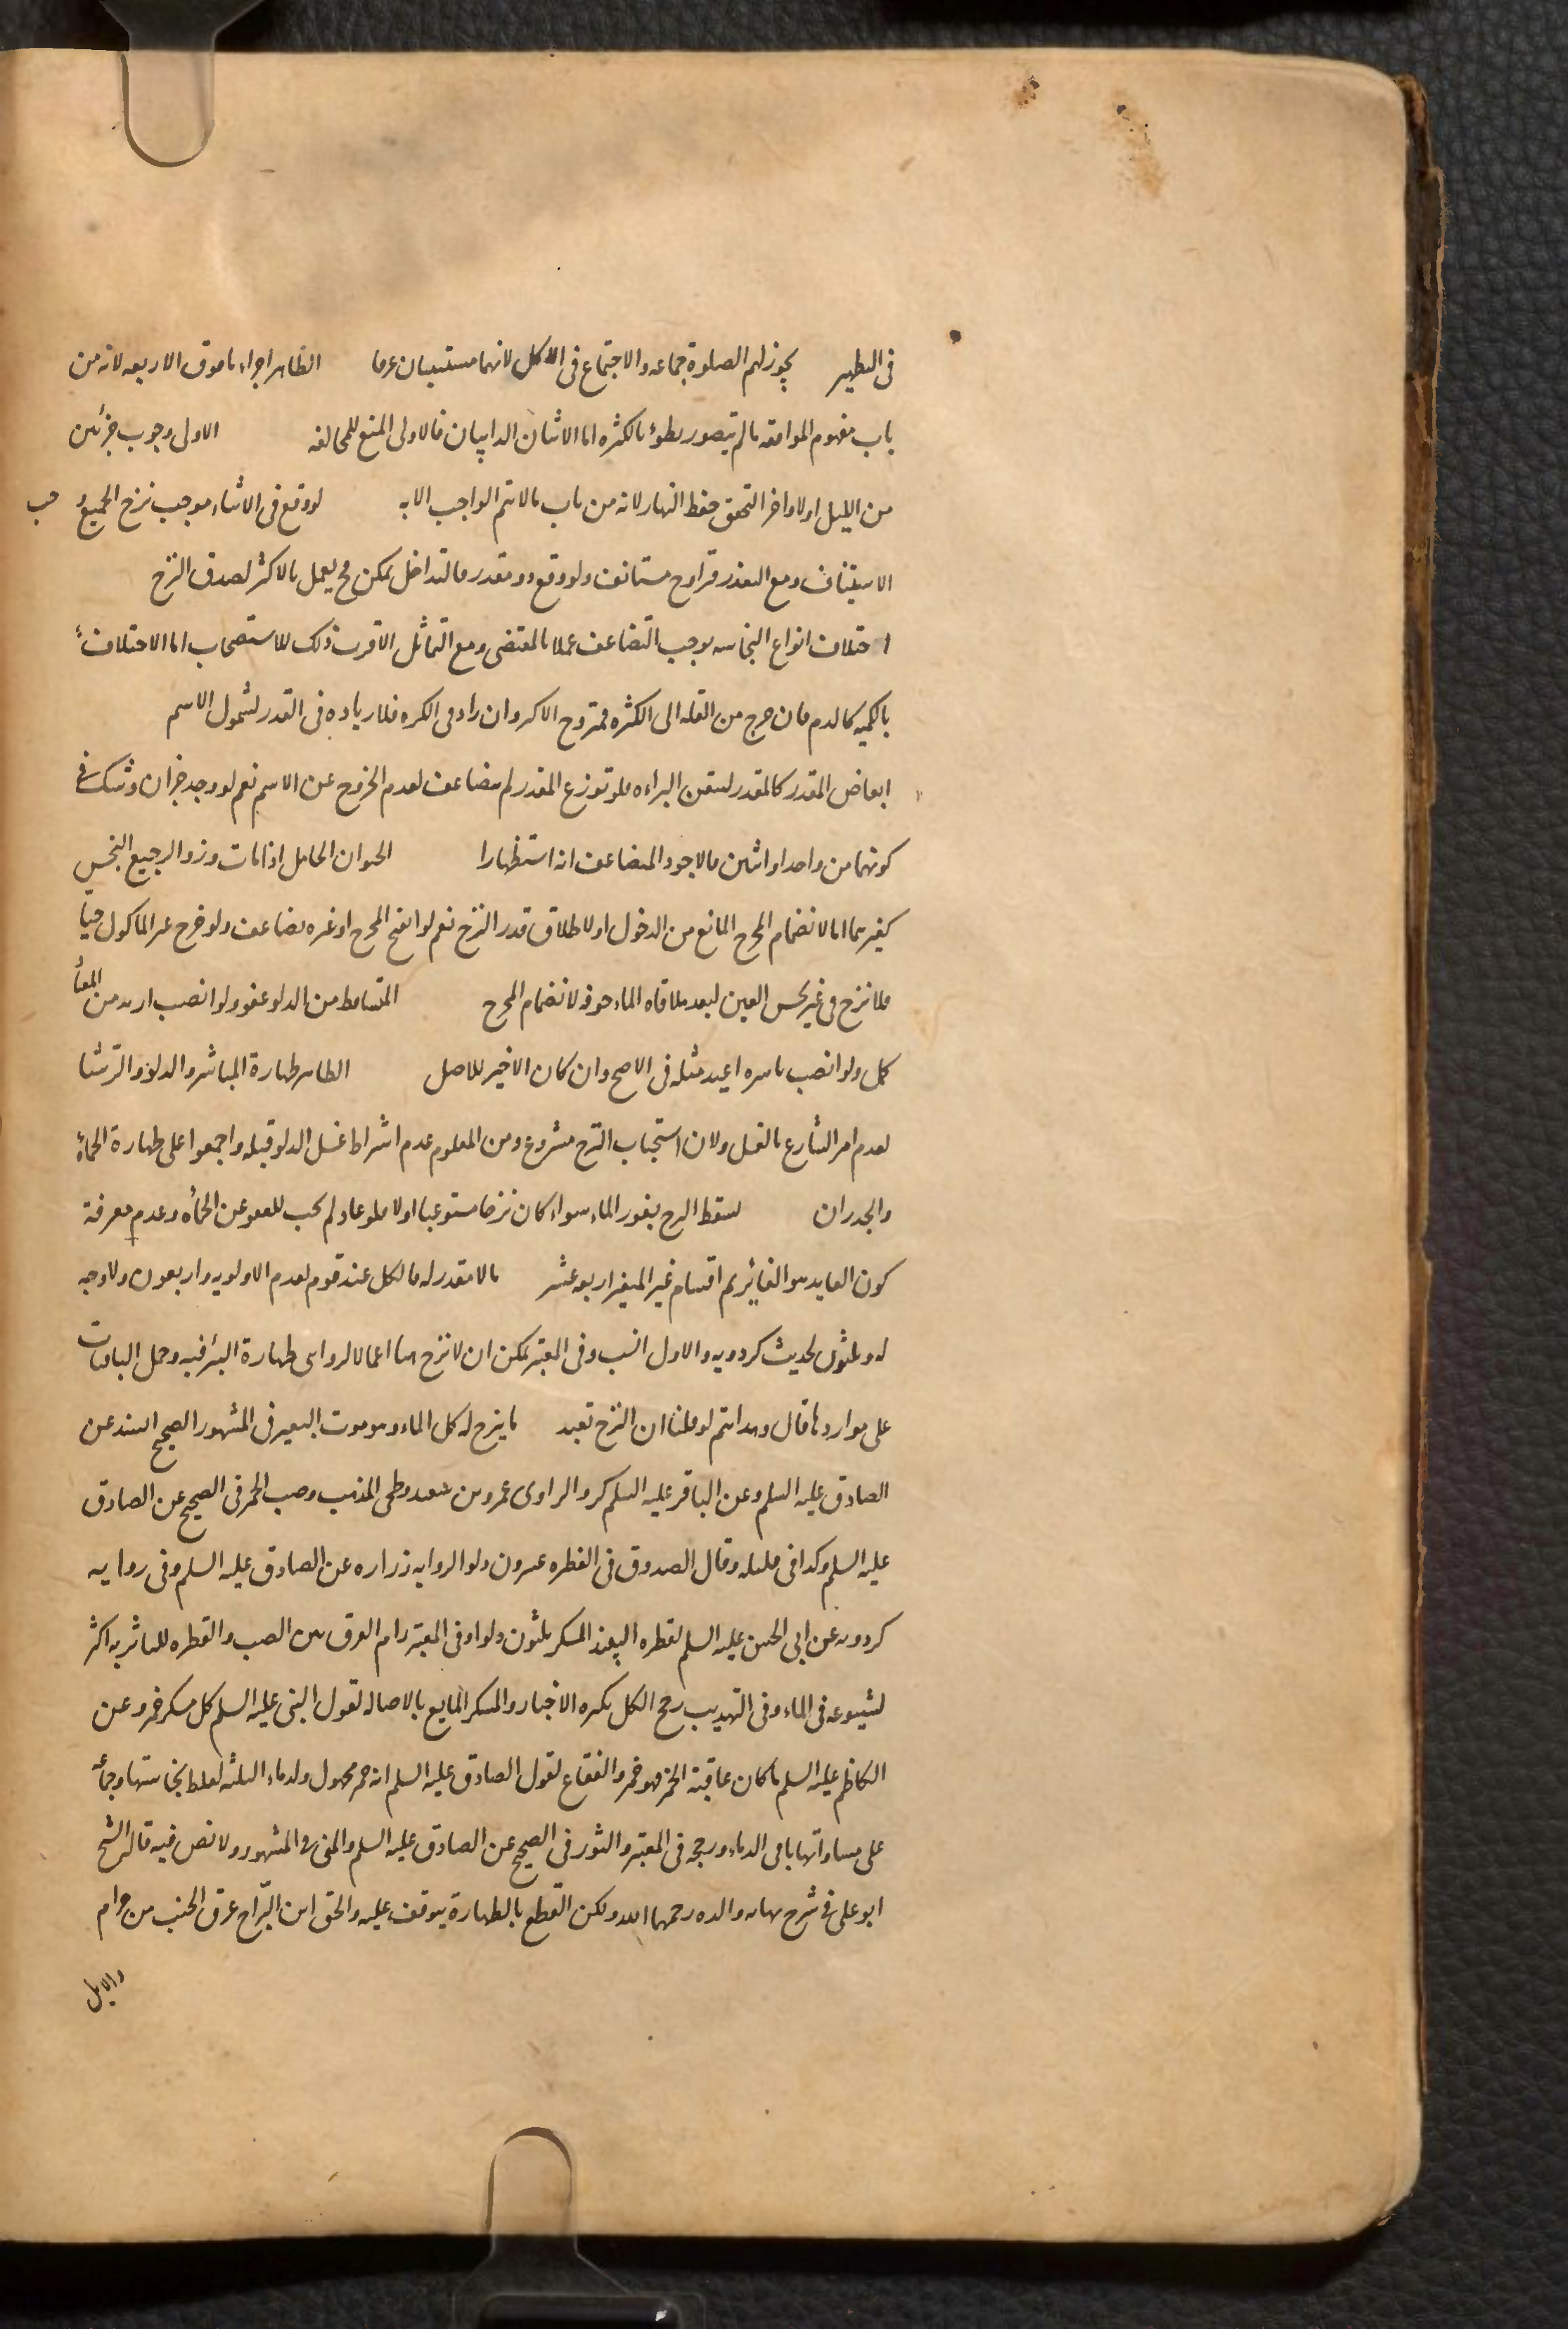 فى التطهير يجوز لهم الصلوة جماعه والاجتماع فى الاكل لانهما مستثنيان عرفا الظاهر اجزاء ما فوق الاربعه لانه من
باب مفهوم الموافقه ما لم يتصور بطوء بالكثره اما الاثنان الدايبان فالاولى المنع للمخالفه الاولى وجوب جزئين
من الليل اولا واخرا لتحقق حفظ النهار لانه من باب ما لا يتم الواجب الا به لو وقع فى الاثناء موجب نزح الجميع وجب
الاستيناف ومع التعذر فتراوح مستانف ولو وقع ذو مقدر فالتداخل ممكن فح يعمل بالاكثر لصدق النزح
اختلاف انواع النجاسه يوجب التضاعف عملا بالمقتضى ومع التماثل الاقرب ذلك للاستصحاب اما الاختلاف
بالكميه كالدم فان خرج من القله الى الكثره فمنزوح الاكثر وان زاد فى الكثره فلا زياده فى القدر لشمول الاسم
ابعاض المقدر كالمقدر لتيقن البراءه فلو توزع المقدر لم يتضاعف لعدم الخروج عن الاسم نعم لو وجد جزان وشك فى
كونهما من واحد او اثنين فالاجود التضاعف انه استظهارا الحيوان الحامل اذا مات وذو الرجيع النجس
كغيرهما اما لانضمام المخرج المانع من الدخول او لاطلاق قدر النزح نعم لو انفتح المخرج او غيره تضاعف ولو خرج غير الماكول حيا
فلا نزح فى غير نجس العين لبعد ملاقاه الماء جوفه لانضمام المخرج المتساقط من الدلو عفو ولو انصب ازيد من المعتاد
كمل ولو انصب باسره اعيد مثله فى الاصح وان كان الاخير للاصل الظاهر طهارة المباشر والدلو والرشا
لعدم امر الشارع بالغسل ولان استحباب النزح مشروع ومن المعلوم عدم اشتراط غسل الدلو قبله واجمعوا على طهارة الحمأة
والجدران يسقط النزح بغور الماء سواء كان نزحا مستوعبا او لا فلو عاد لم يجب للعفو عن الحمأه وعدم معرفة
كون العايد هو الغائر ثم اقسام غير المغير اربعه عشر ما لا مقدر له فالكل عند قوم لعدم الاولويه واربعون ولا وجه
له وثلثون لحديث كردويه والاول انسب وفى المعتبر يمكن ان لا نزح هنا اعمالا لروايتى طهارة البئر فيه وحمل الباقيات
على مواردها قال وهذا يتم لو قلنا ان النزح تعبد ما ينزح له كل الماء وهو موت البعير فى المشهور الصحيح السند عن
الصادق عليه السلم وعن الباقر عليه السلم كر والراوى عمرو بن سعيد فطحى المذهب وصب الخمر فى الصحيح عن الصادق
عليه السلم وكذا فى قليله وقال الصدوق فى القطره عشرون دلوا لروايه زراره عن الصادق عليه السلم وفى روايه
كردويه عن ابى الحسن عليه السلم لقطره النبيذ المسكر ثلثون دلوا وفى المعتبر رام الفرق بين الصب والقطره للتاثر به اكثر
لشيوعه فى الماء وفى التهذيب رجح الكل بكثره الاخبار والمسكر المايع بالاصاله لقول النبى عليه السلم كل مسكر خمر وعن
الكاظم عليه السلم ما كان عاقبته الخمر فهو خمر والفقاع لقول الصادق عليه السلم انه خمر مجهول ولدماء الثلثه لغلظ نجاستها وجاء
على مساواتها باقى الدماء ورجحه فى المعتبر والثور فى الصحيح عن الصادق عليه السلم والمنى فى المشهور ولا نص فيه قال الشيخ
ابو على فى شرح نهايه والده رحمهما الله ولكن القطع بالطهارة يتوقف عليه والحق ابن البراج عرق الجنب من حرام
والابل